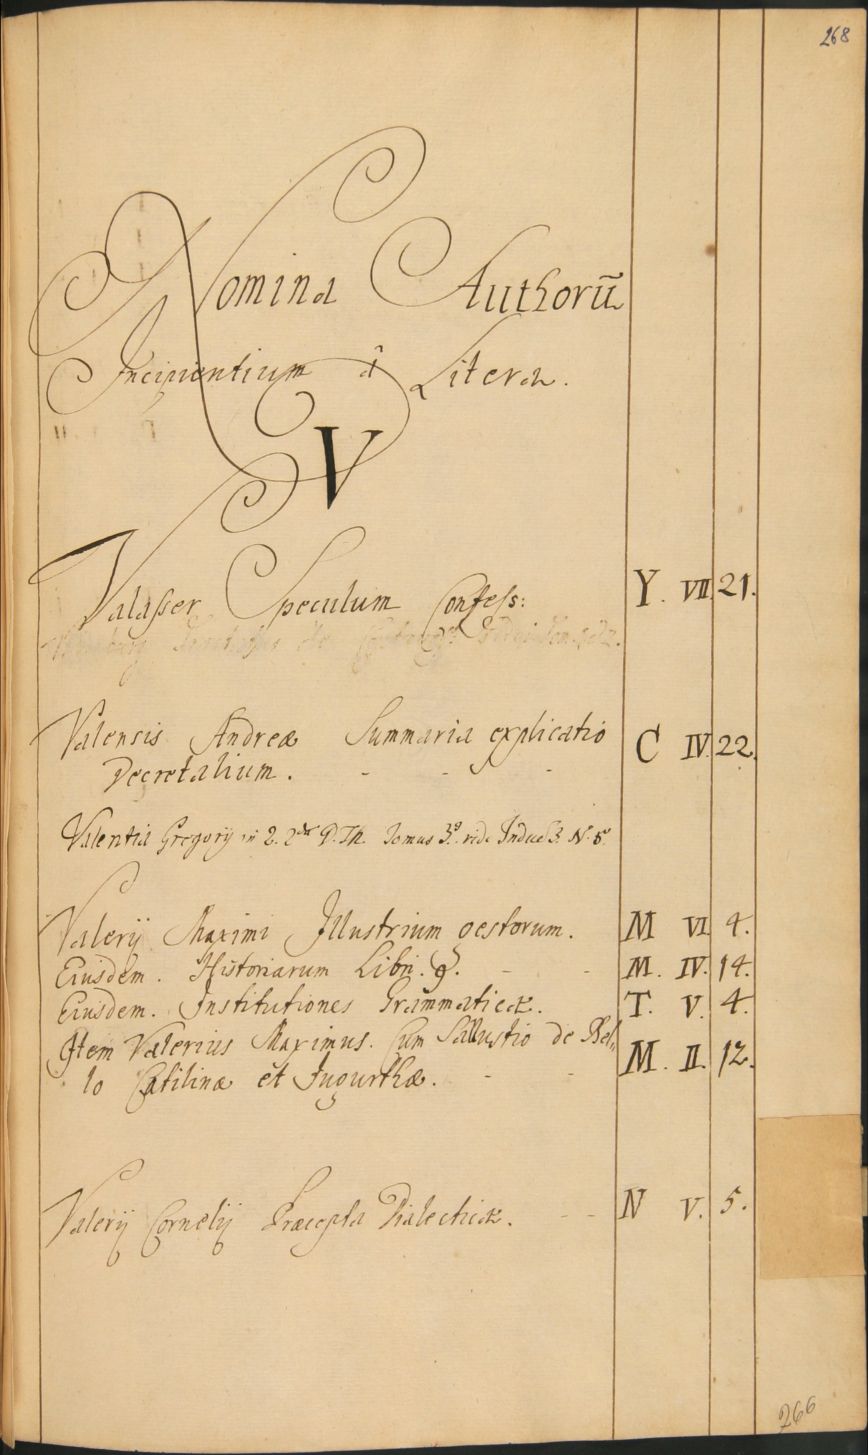 268
Nomina Authorū
Incipientium â Litera.
V
Valasser Speculum Confess: Y. VII. 21.
Valensis Andreæ Summaria explicatio C IV. 22.
Decretalium. - - -
Valentia Gregorij in 2. 2dæ D. Th. Tomus 3º. vide S. N. 5º
Valerij Maximi Illustrium gestorum. M VI 4.
Eiusdem. Historiarum Libri. 9. - - M. IV. 14.
Eiusdem. Institutiones Grammaticæ. T. V. 4.
Item Valerius Maximus. Cum Sallustio de Bel, M. II. 12.
lo Catilinæ et Jugurthæ. - -
Valerij Cornelij Præcepta Dialecticæ. - - N V. 5.
266